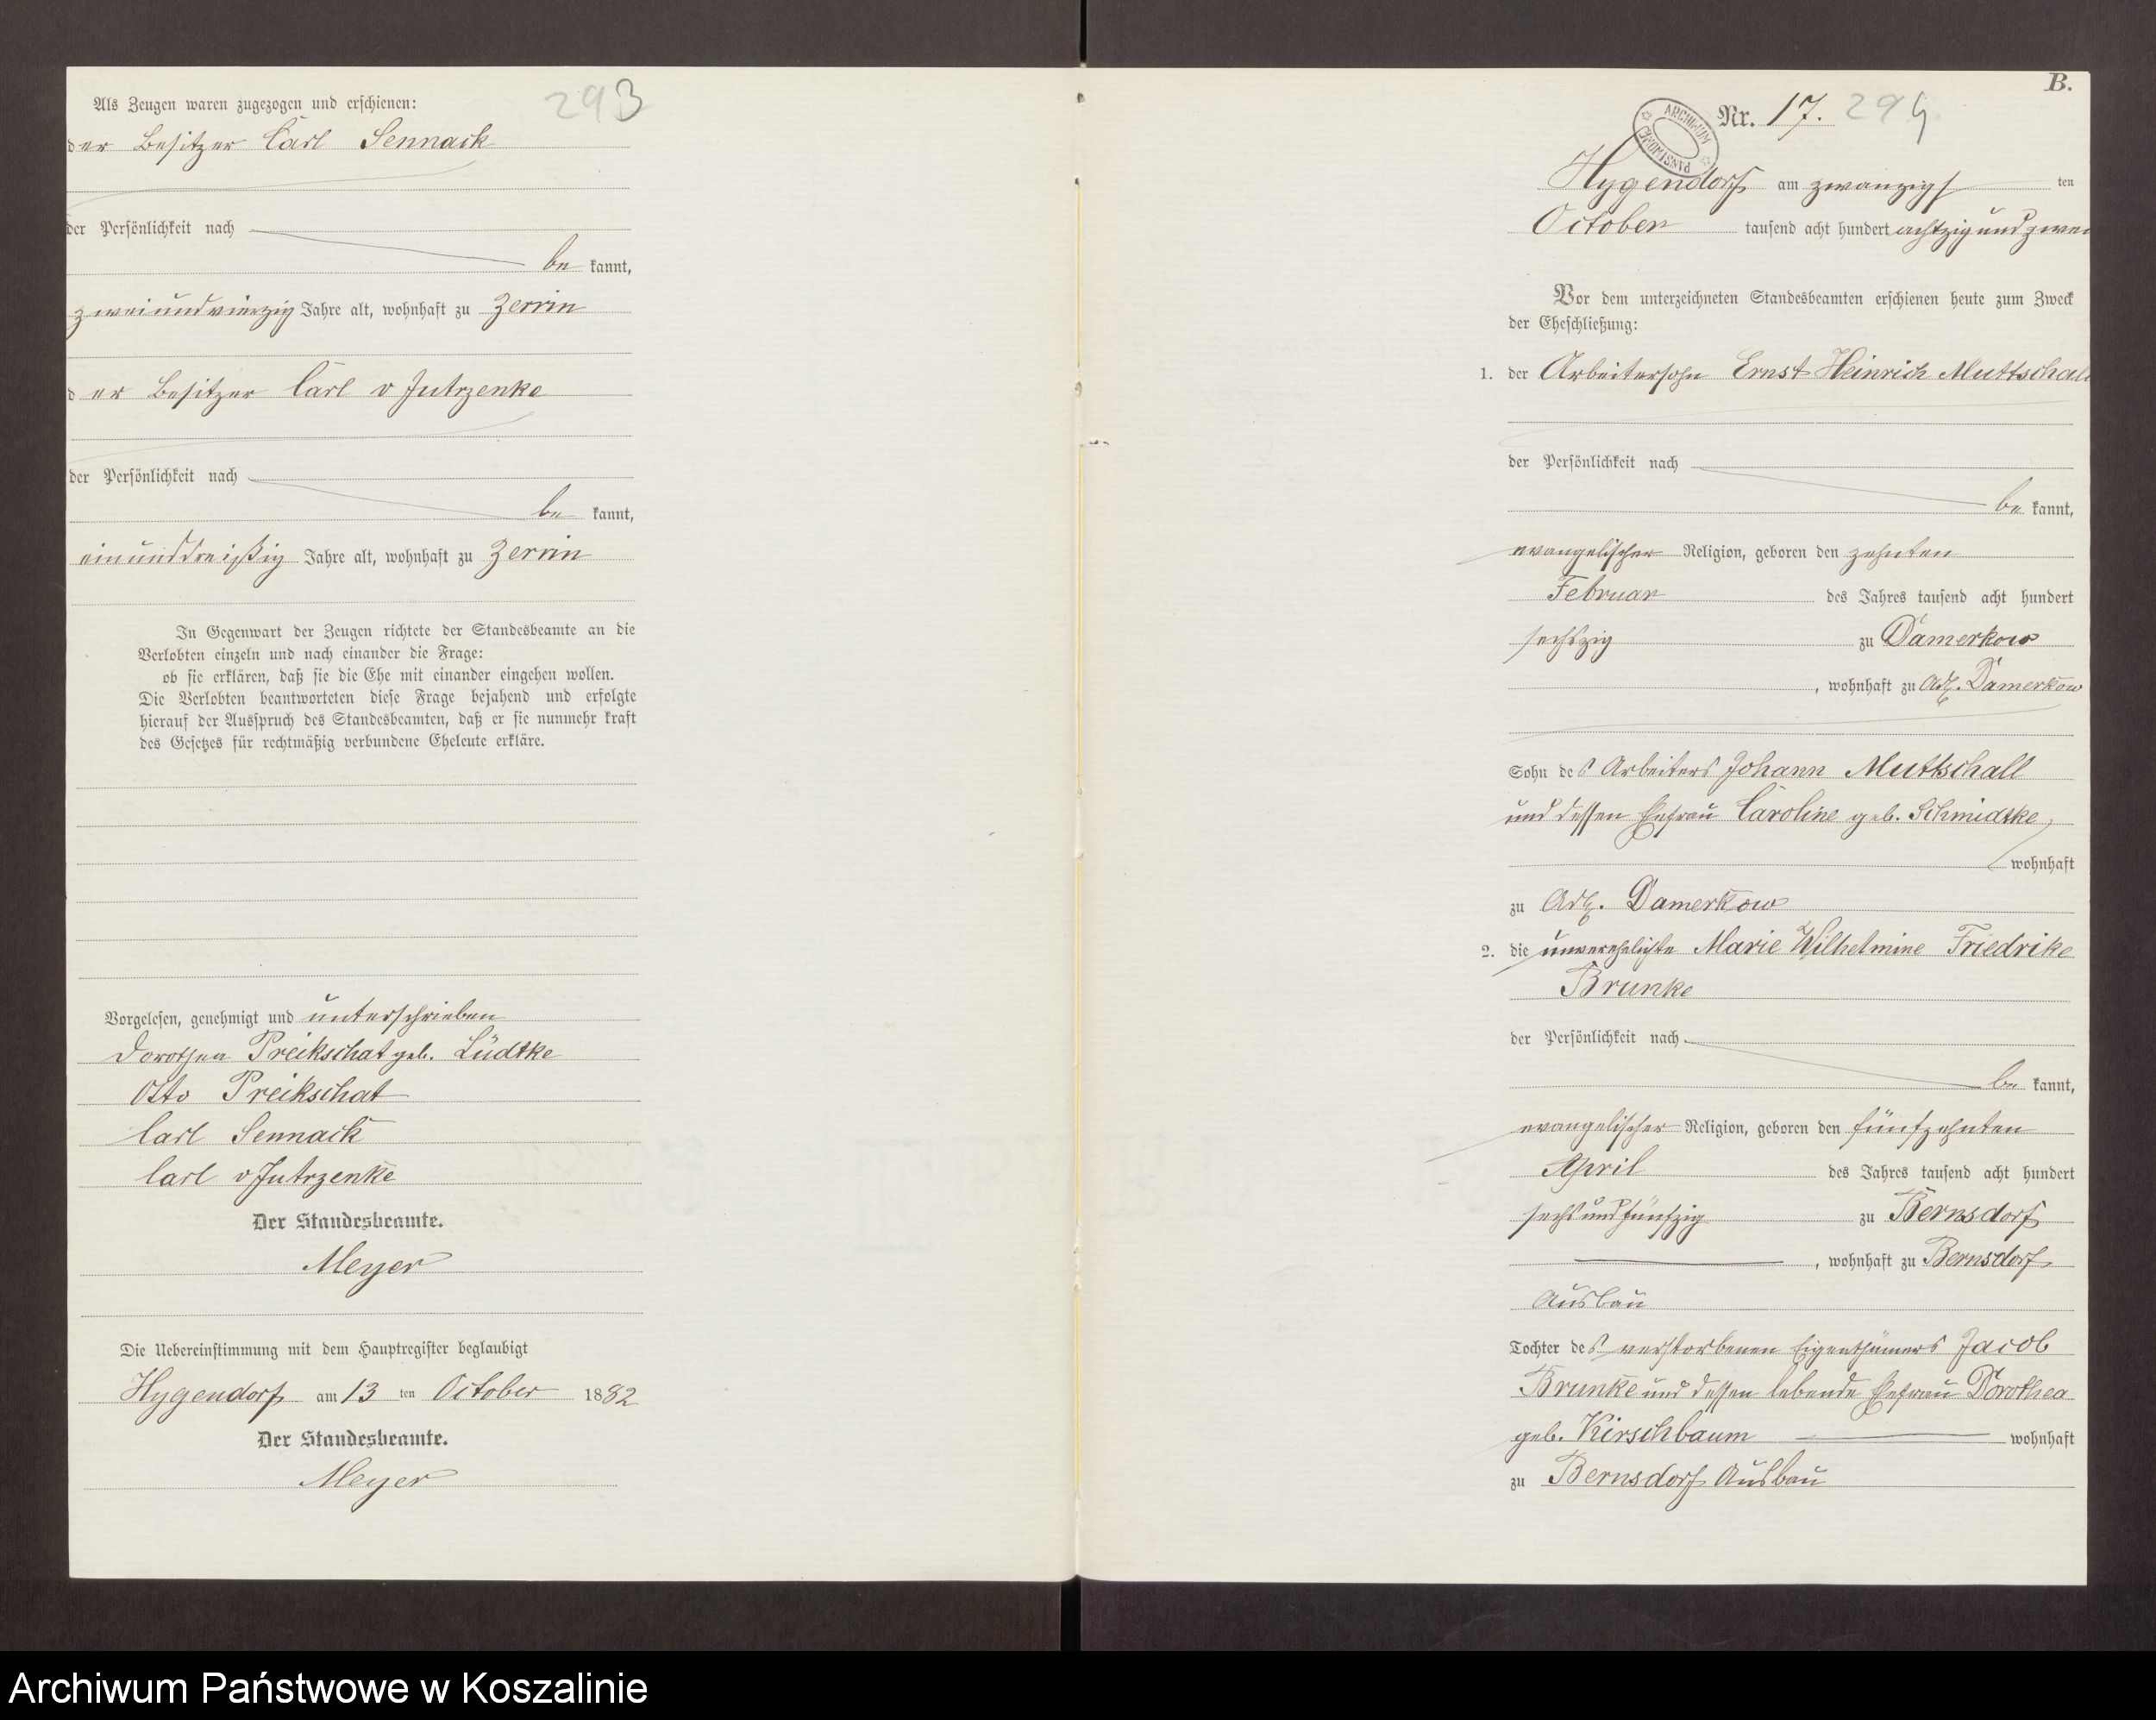 293
Als Zeugen waren zugezogen und erschienen:
der Besitzer Carl Sennack
der Persönlichkeit nach
be kannt,
zweiundvierzig Jahre alt, wohnhaft zu Zerrin
der Besitzer Carl v Jutrzenke
der Persönlichkeit nach
be kannt,
einunddreißig Jahre alt, wohnhaft zu Zerrin
In Gegenwart der Zeugen richtete der Standesbeamte an die
Verlobten einzeln und nach einander die Frage:
ob sie erklären, daß sie die Ehe mit einander eingehen wollen.
Die Verlobten beantworteten diese Frage bejahend und erfolgte
hierauf der Ausspruch des Standesbeamten, daß er sie nunmehr kraft
des Gesetzes für rechtmäßig verbundene Eheleute erkläre.
Vorgelesen, genehmigt und unterschrieben
Dorothea Preikschat geb. Lüdtke
Otto Preikschat
Carl Sennack
Carl v Jutrzenke
Der Standesbeamte.
Meyer
Die Uebereinstimmung mit dem Hauptregister beglaubigt
Hygendorf am 13 ten October 1882
Der Standesbeamte.
Meyer
B.
Nr. 17. 294
ARCHIWUM PAŃSTWOWE
Hygendorf am zwanzigs ten
October tausend acht hundert achtzig und zwei
Vor dem unterzeichneten Standesbeamten erschienen heute zum Zweck
der Eheschließung:
1. der Arbeitersohn Ernst Heinrich Muttschall
der Persönlichkeit nach
be kannt,
evangelischer Religion, geboren den zehnten
Februar des Jahres tausend acht hundert
sechszig zu Damerkow
, wohnhaft zu Adl. Damerkow
Sohn des Arbeiters Johann Muttschall
und dessen Ehefrau Caroline geb. Schmidtke
wohnhaft
zu Adl. Damerkow
2. die unverehelichte Marie Wilhelmine Friedrike
Brunke
der Persönlichkeit nach
be kannt,
evangelischer Religion, geboren den fünfzehnten
April des Jahres tausend acht hundert
sechs und fünfzig zu Bernsdorf
, wohnhaft zu Bernsdorf
Ausbau
Tochter des verstorbenen Eigenthümers Jacob
Brunke und dessen lebende Ehefrau Dorothea
geb. Kirschbaum wohnhaft
zu Bernsdorf Ausbau
Archiwum Państwowe w Koszalinie